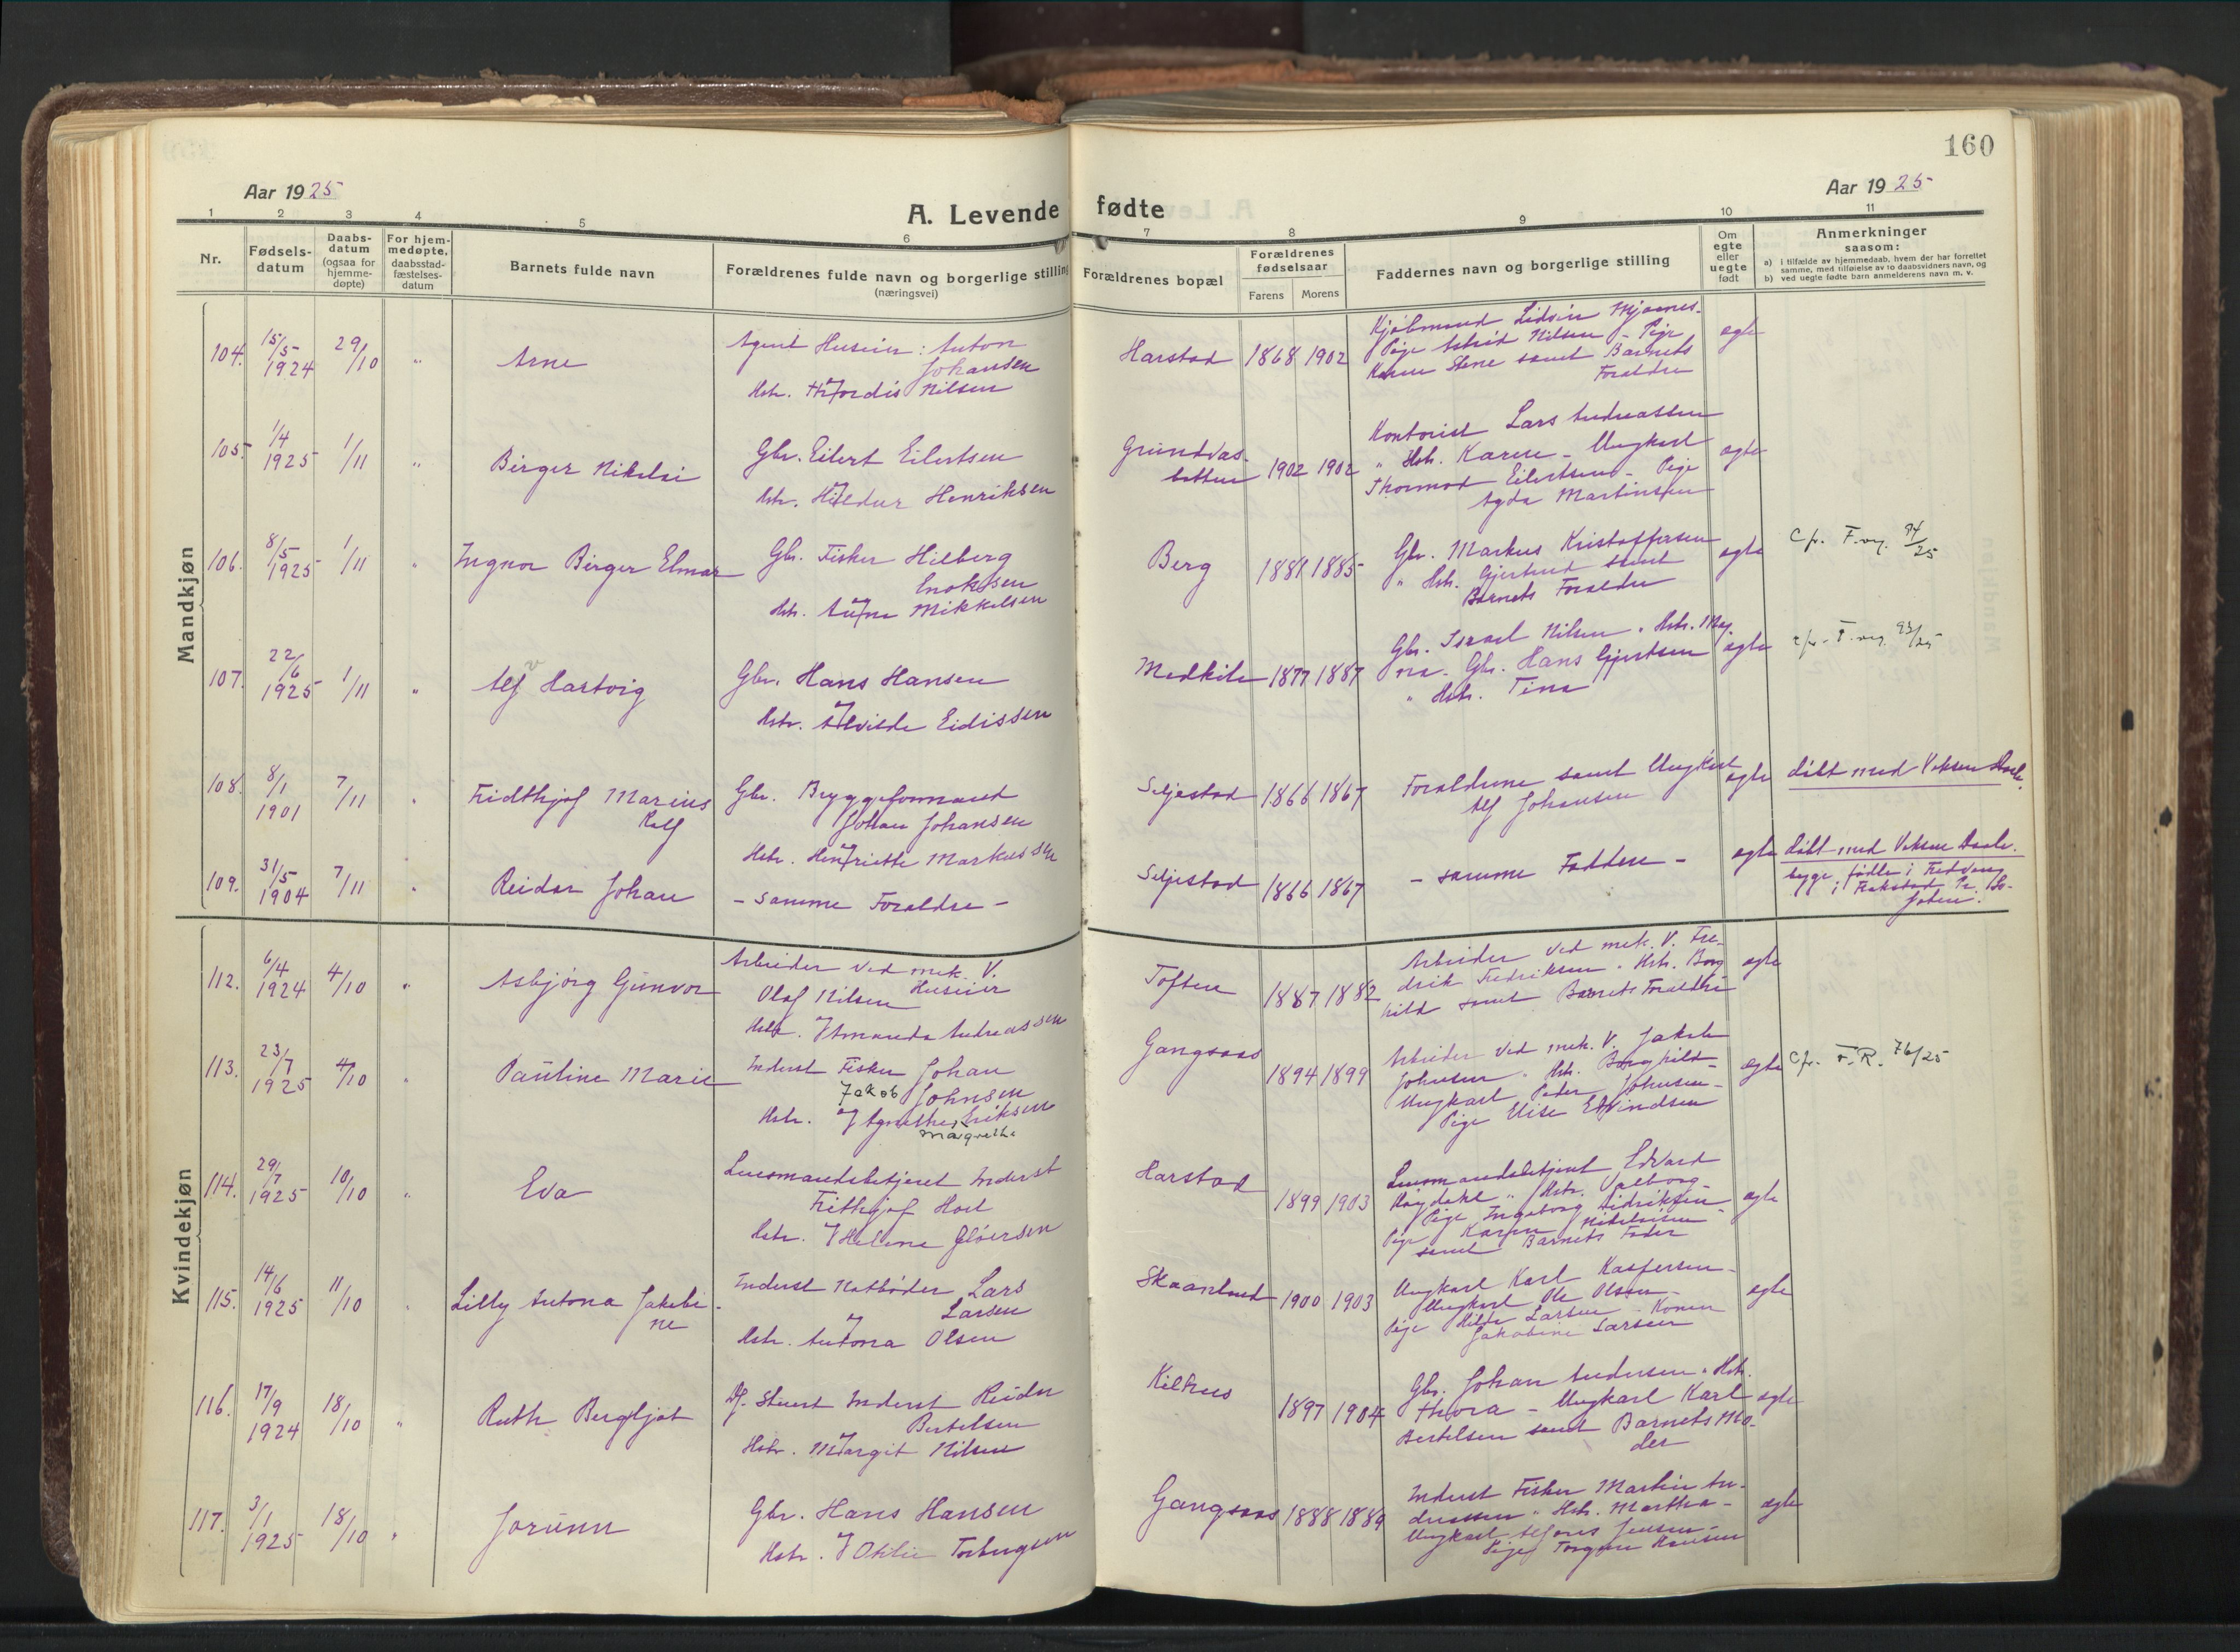 160
Aar 1925
Aar 1925
A. Levende fødte
1 2 3 4 5 6 7 8 9 10 11
Nr.
Fødsels-
datum
Daabs-
datum
(ogsaa for
hjemme-
døpte)
For hjem-
medøpte,
daabsstad-
fæstelses-
datum
Barnets fulde navn
Forældrenes fulde navn og borgerlige stilling
(næringsvei)
Forældrenes bopæl
Forældrenes
fødselsaar
Farens Morens
Faddernes navn og borgerlige stilling
Om
egte
eller
uegte
født
Anmerkninger
saasom:
a) i tilfælde av hjemmedaab, hvem der har forrettet
samme, med tilføielse av to daabsvidners navn, og
b) ved uegte fødte barn anmelderens navn m. v.
Mandkjøn
104. 15/5 1924 29/10 "
Arne
Agent Huseier: Anton
Johansen
Hstr. Hjørdis Nilsen
Harstad 1868 1902
Pige Astrid Nilsen - Pige
Karen Stene samt Barnets
Forældre
egte
105. 1/4 1925 1/11 "
Birger Nikolai
Gbr. Eilert Eilertsen
Hstr. Hildur Henriksen
Grundvas-
botten 1902 1902
Kontorist Lars Andreassen
" Hstr. Karen - Ungkarl
Thormod Eilertsen - Pige
Agda Martinsen
egte
106. 8/5 1925 1/11 "
Ingvor Birger Elmar
Gbr. Fisker Hilberg
Enoksen
Hstr. Anna Mikkelsen
Berg 1881 1885
Gbr. Markus Kristoffersen
" Hstr. Gjertrud samt
Barnets Forældre
egte
Cfr. F.reg. 94/25
107. 22/6 1925 1/11 "
Alf Hartvig
Gbr. Hans Hansen
Hstr. Alvilde Eidissen
Medkila 1877 1887
Gbr. Israel Nilsen. Hstr. Mag
na. Gbr. Hans Gjertsen
" Hstr. Tina
egte
cfr. F.reg. 93/25
108. 8/1 1901 7/11 "
Fridthjof Marius
Rolf
Gbr. Bryggeformand
Johan Johansen
Hstr. Henriette Markussen
Seljestad 1866 1867
Forældrene samt Ungkarl
Alf Johansen
egte
døbt med Voksen Daab.
109. 31/5 1904 7/11 "
Reidar Johan
- samme Forældre -
Seljestad 1866 1867
- samme Faddere -
egte
døbt med Voksen Daab.
begge fødte i Fredvang
i Flakstad Pr. Lo-
foten.
Kvindekjøn
112. 6/4 1924 4/10 "
Asbjørg Gunvor
Arbeider ved mek. V.
Olaf Nilsen Huseier
Hstr. Amanda Andreassen
Toften 1887 1882
Arbeider ved mek. V. Fre-
drik Fredriksen. Hstr. Borg
hild samt Barnets Forældre
egte
113. 23/7 1925 4/10 "
Pauline Marie
Inderst Fisker Johan
Jakob Johnsen
Hstr. Agnethe Eriksen
Margrethe
Gangsaas 1894 1899
Arbeider ved mek. V. Jakob
Johnsen. Hstr. Borghild -
Ungkarl Peder Johnsen -
Pige Elise Eivindsen
egte
Cfr. F.R. 76/25
114. 29/7 1925 10/10 "
Eva
Lensmandsbetjent Inderst
Frithjof Hoel
Hstr. Helene Gløersen
Harstad 1899 1903
Lensmandsbetjent Edvard
Høydahl " Hstr. Valborg -
Pige Ingeborg Didriksen -
Pige Karen Nikolaisen
samt Barnets Fader
egte
115. 14/6 1925 11/10 "
Lilly Antona Jakobi-
ne
Inderst Notbøder Lars
Larsen
Hstr. Antona Olsen
Skaanland 1900 1903
Ungkarl Karl Kaspersen -
Ungkarl Ole Olsen -
Pige Hilda Larsen - Konen
Jakobine Larsen
egte
116. 17/9 1924 18/10 "
Ruth Bergljot
Df. Stuert Inderst Reidar
Bertelsen
Hstr. Margit Nilsen
Kilhus 1897 1904
Gbr. Johan Andersen. Hstr.
Thora - Ungkarl Karl
Bertelsen samt Barnets Mo-
der
egte
117. 3/1 1925 18/10 "
Jorunn
Gbr. Hans Hansen
Hstr. Otilie Torbergsen
Gangsaas 1888 1889
Inderst Fisker Martin An-
dreassen " Hstr. Martha -
Ungkarl Jensen -
Pige Hansen
egte